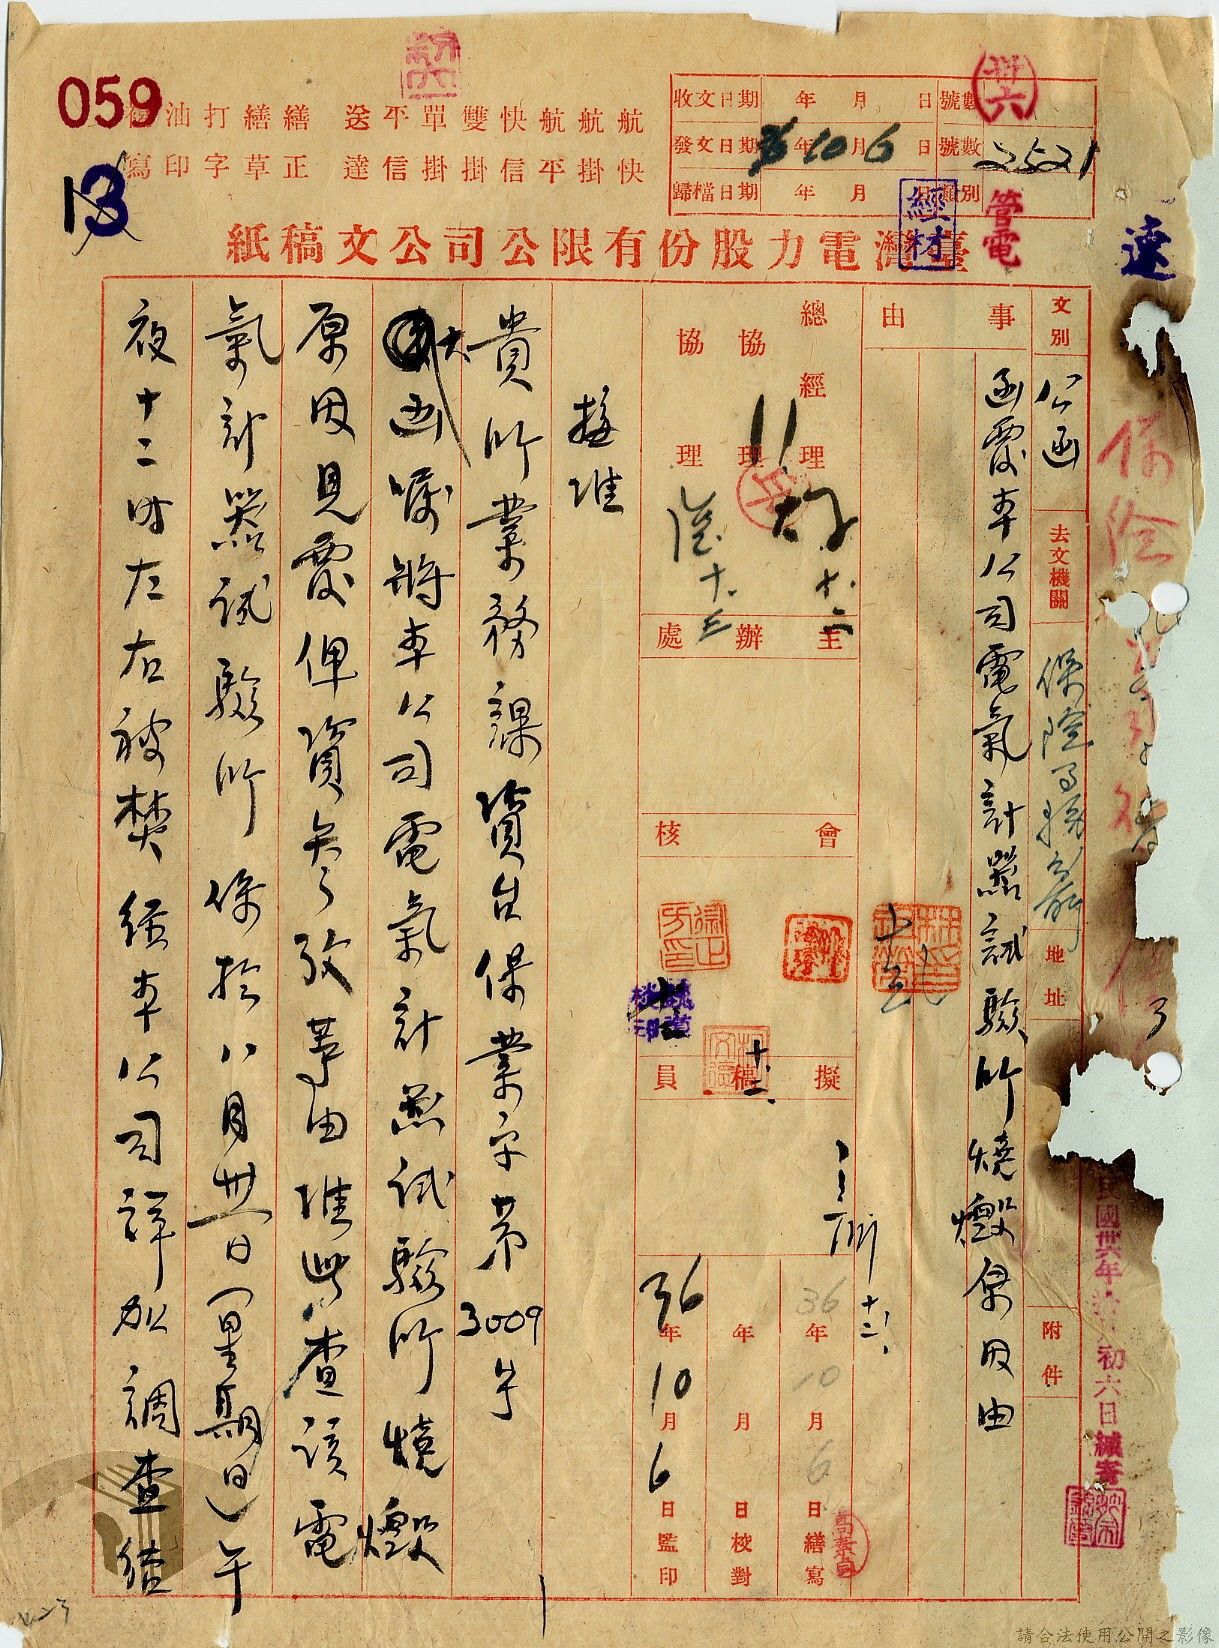 059
13
航 航 航 快 雙 單 平 送 繕 繕 打 油
快 掛 平 信 掛 掛 信 達 正 草 字 印 寫
收文日期 年 月 日 號數
發文日期 36年10月6日 號數 2521
歸檔日期 年 月 日 類別
經材
管電
速
臺灣電力股份有限公司公文稿紙
文別 公函 去文機關 地址 附件
事由
函覆本公司電氣計器試驗所燒燬原因由
總經理
協理
協理
主辦處
會核
擬稿員
36年10月6日繕寫
年 月 日校對
36年10月6日監印
接准
貴所業務課資台保業字第3009號
大函囑將本公司電氣計器試驗所燒燬
原因見覆俾資參攷等由准此查該電
氣計器試驗所係於八月卅一日(星期日)午
夜十二時左右被焚經本公司詳加調查結
初六日緘寄
請合法使用公開之影像